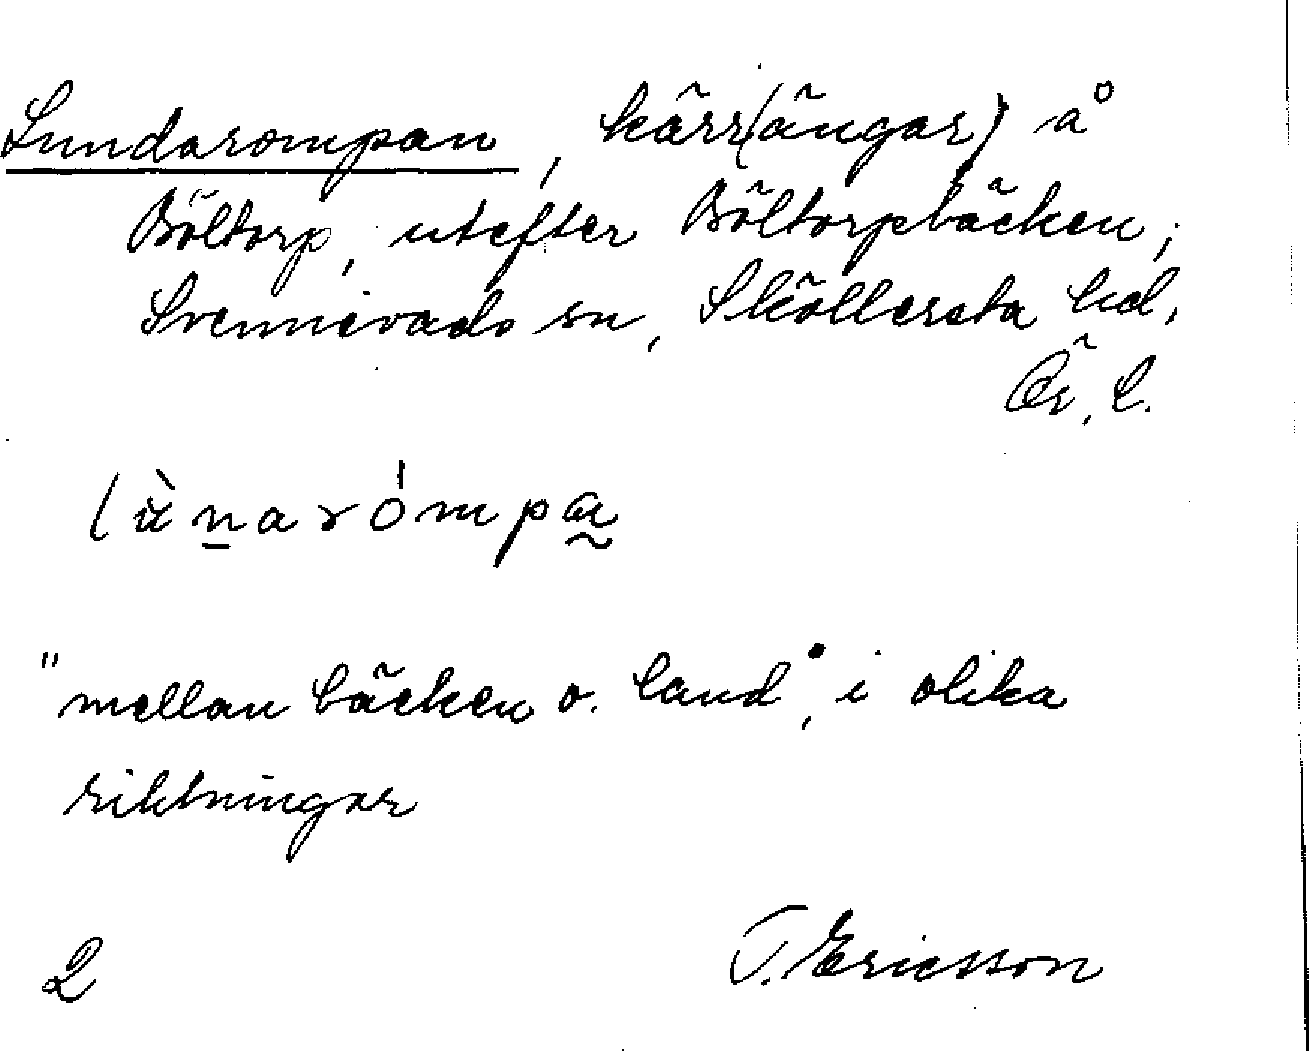 Lundarompan, kärr(ängar) å
Böltorp, utefter Böltorpbäcken,
Svennevads sn, Sköllersta hd,
Ör. l.
lùnarómpa
"mellan bäcken o. land", i olika
riktningar
2 T. Ericsson